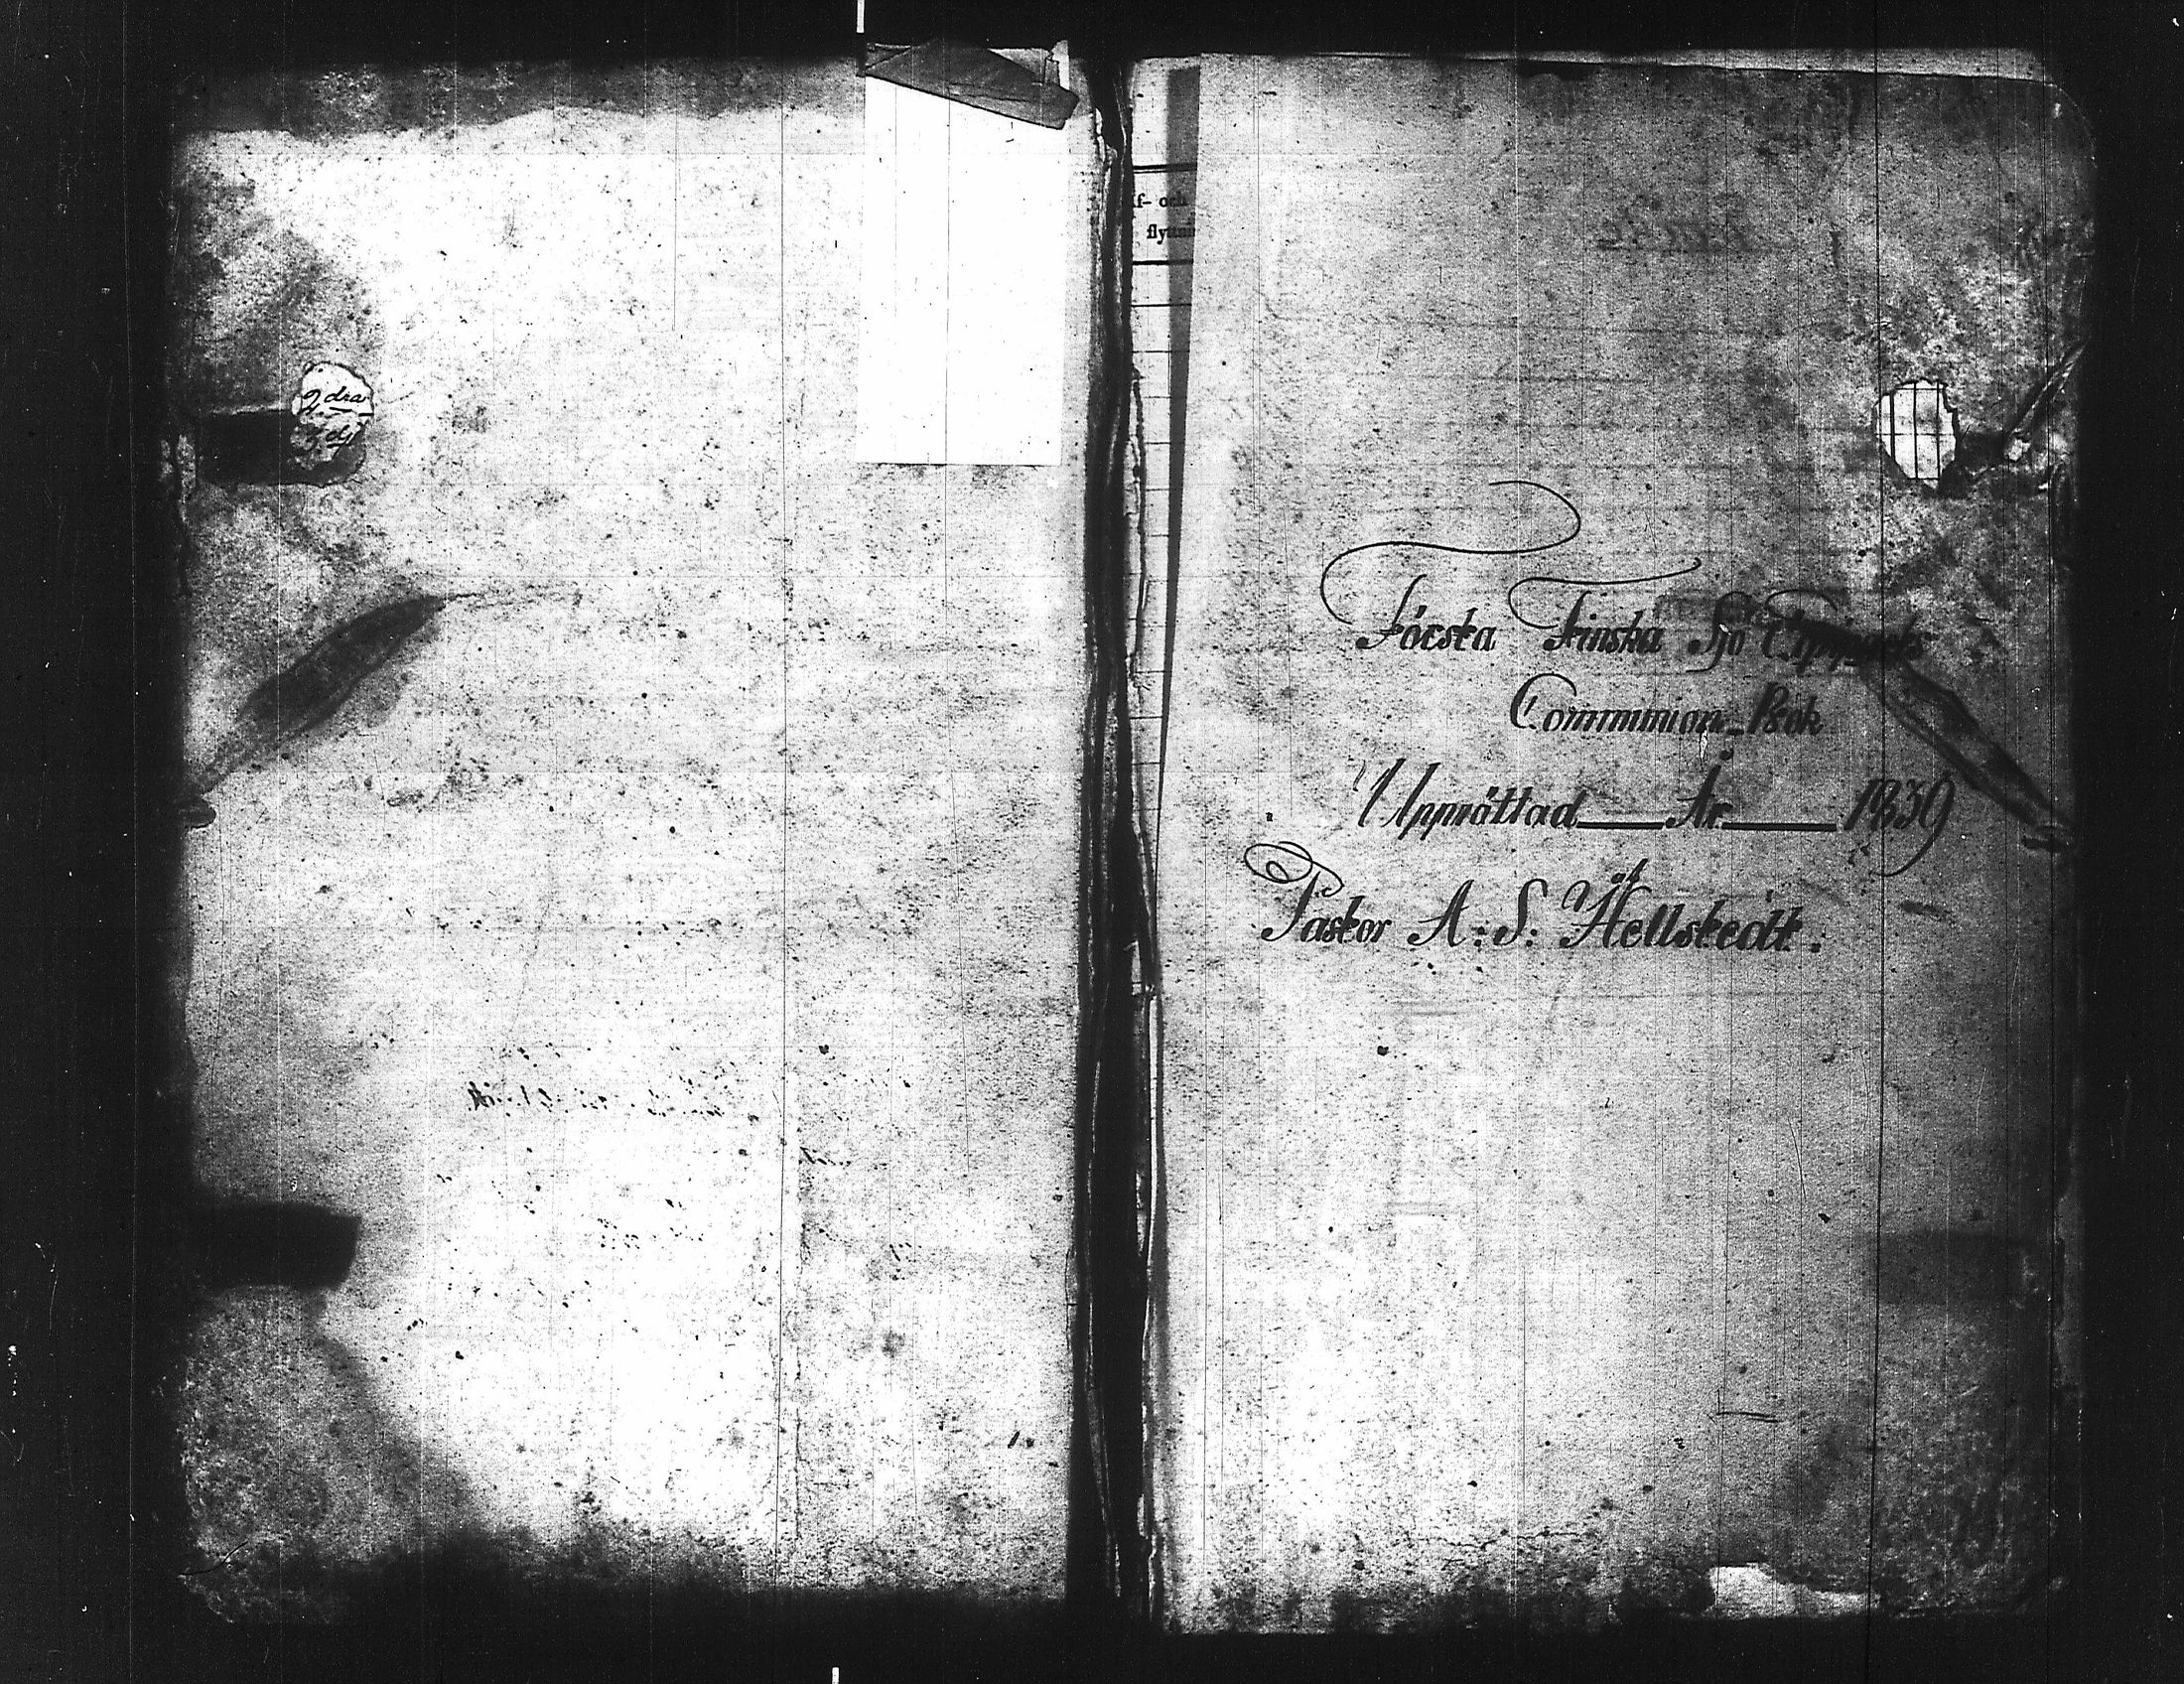 2 dra
f- och
flyttni
Första Finska Sjö Equipagets
Communion-Bok
Upprättad År 1839
af
Pastor A: S: Hellstedt.